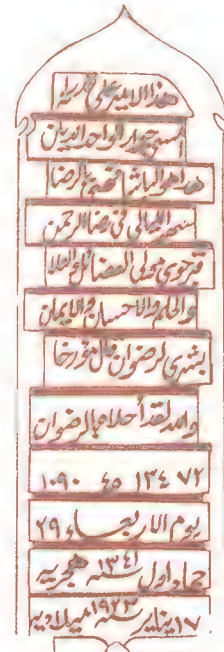 هذا الامير على
جوار الواحد الديان
هذا هو الباشا بالرضا
سهر الليالى فى رضا الرحمن
قد حوى والعلا
والحلم والاحسان والايمان
بشرى لرضوان قال مؤرخا
والله لقد أحلاه بالرضوان
٧٢ ١٣٤ ٤٥ ١٠٩٠
يوم الاربعاء ٢٩
جماد اول سنة ١٣٤١ هجريه
١٧ يناير سنة ١٩٢٣ ميلاديه